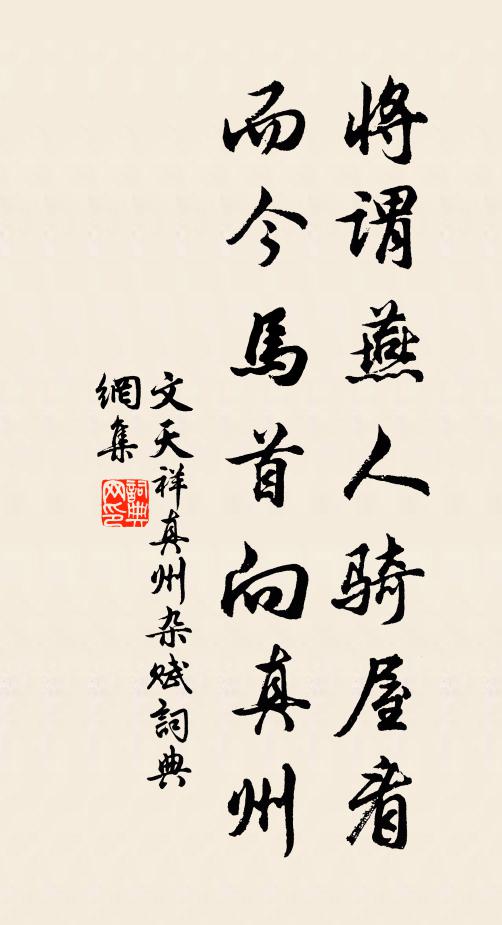 将谓燕人骑屋看
而今馬首向真州
文天祥真州杂赋詞典
網集
詞典网印